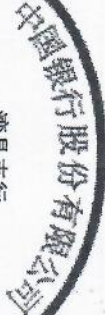 中國銀行股份有限公司